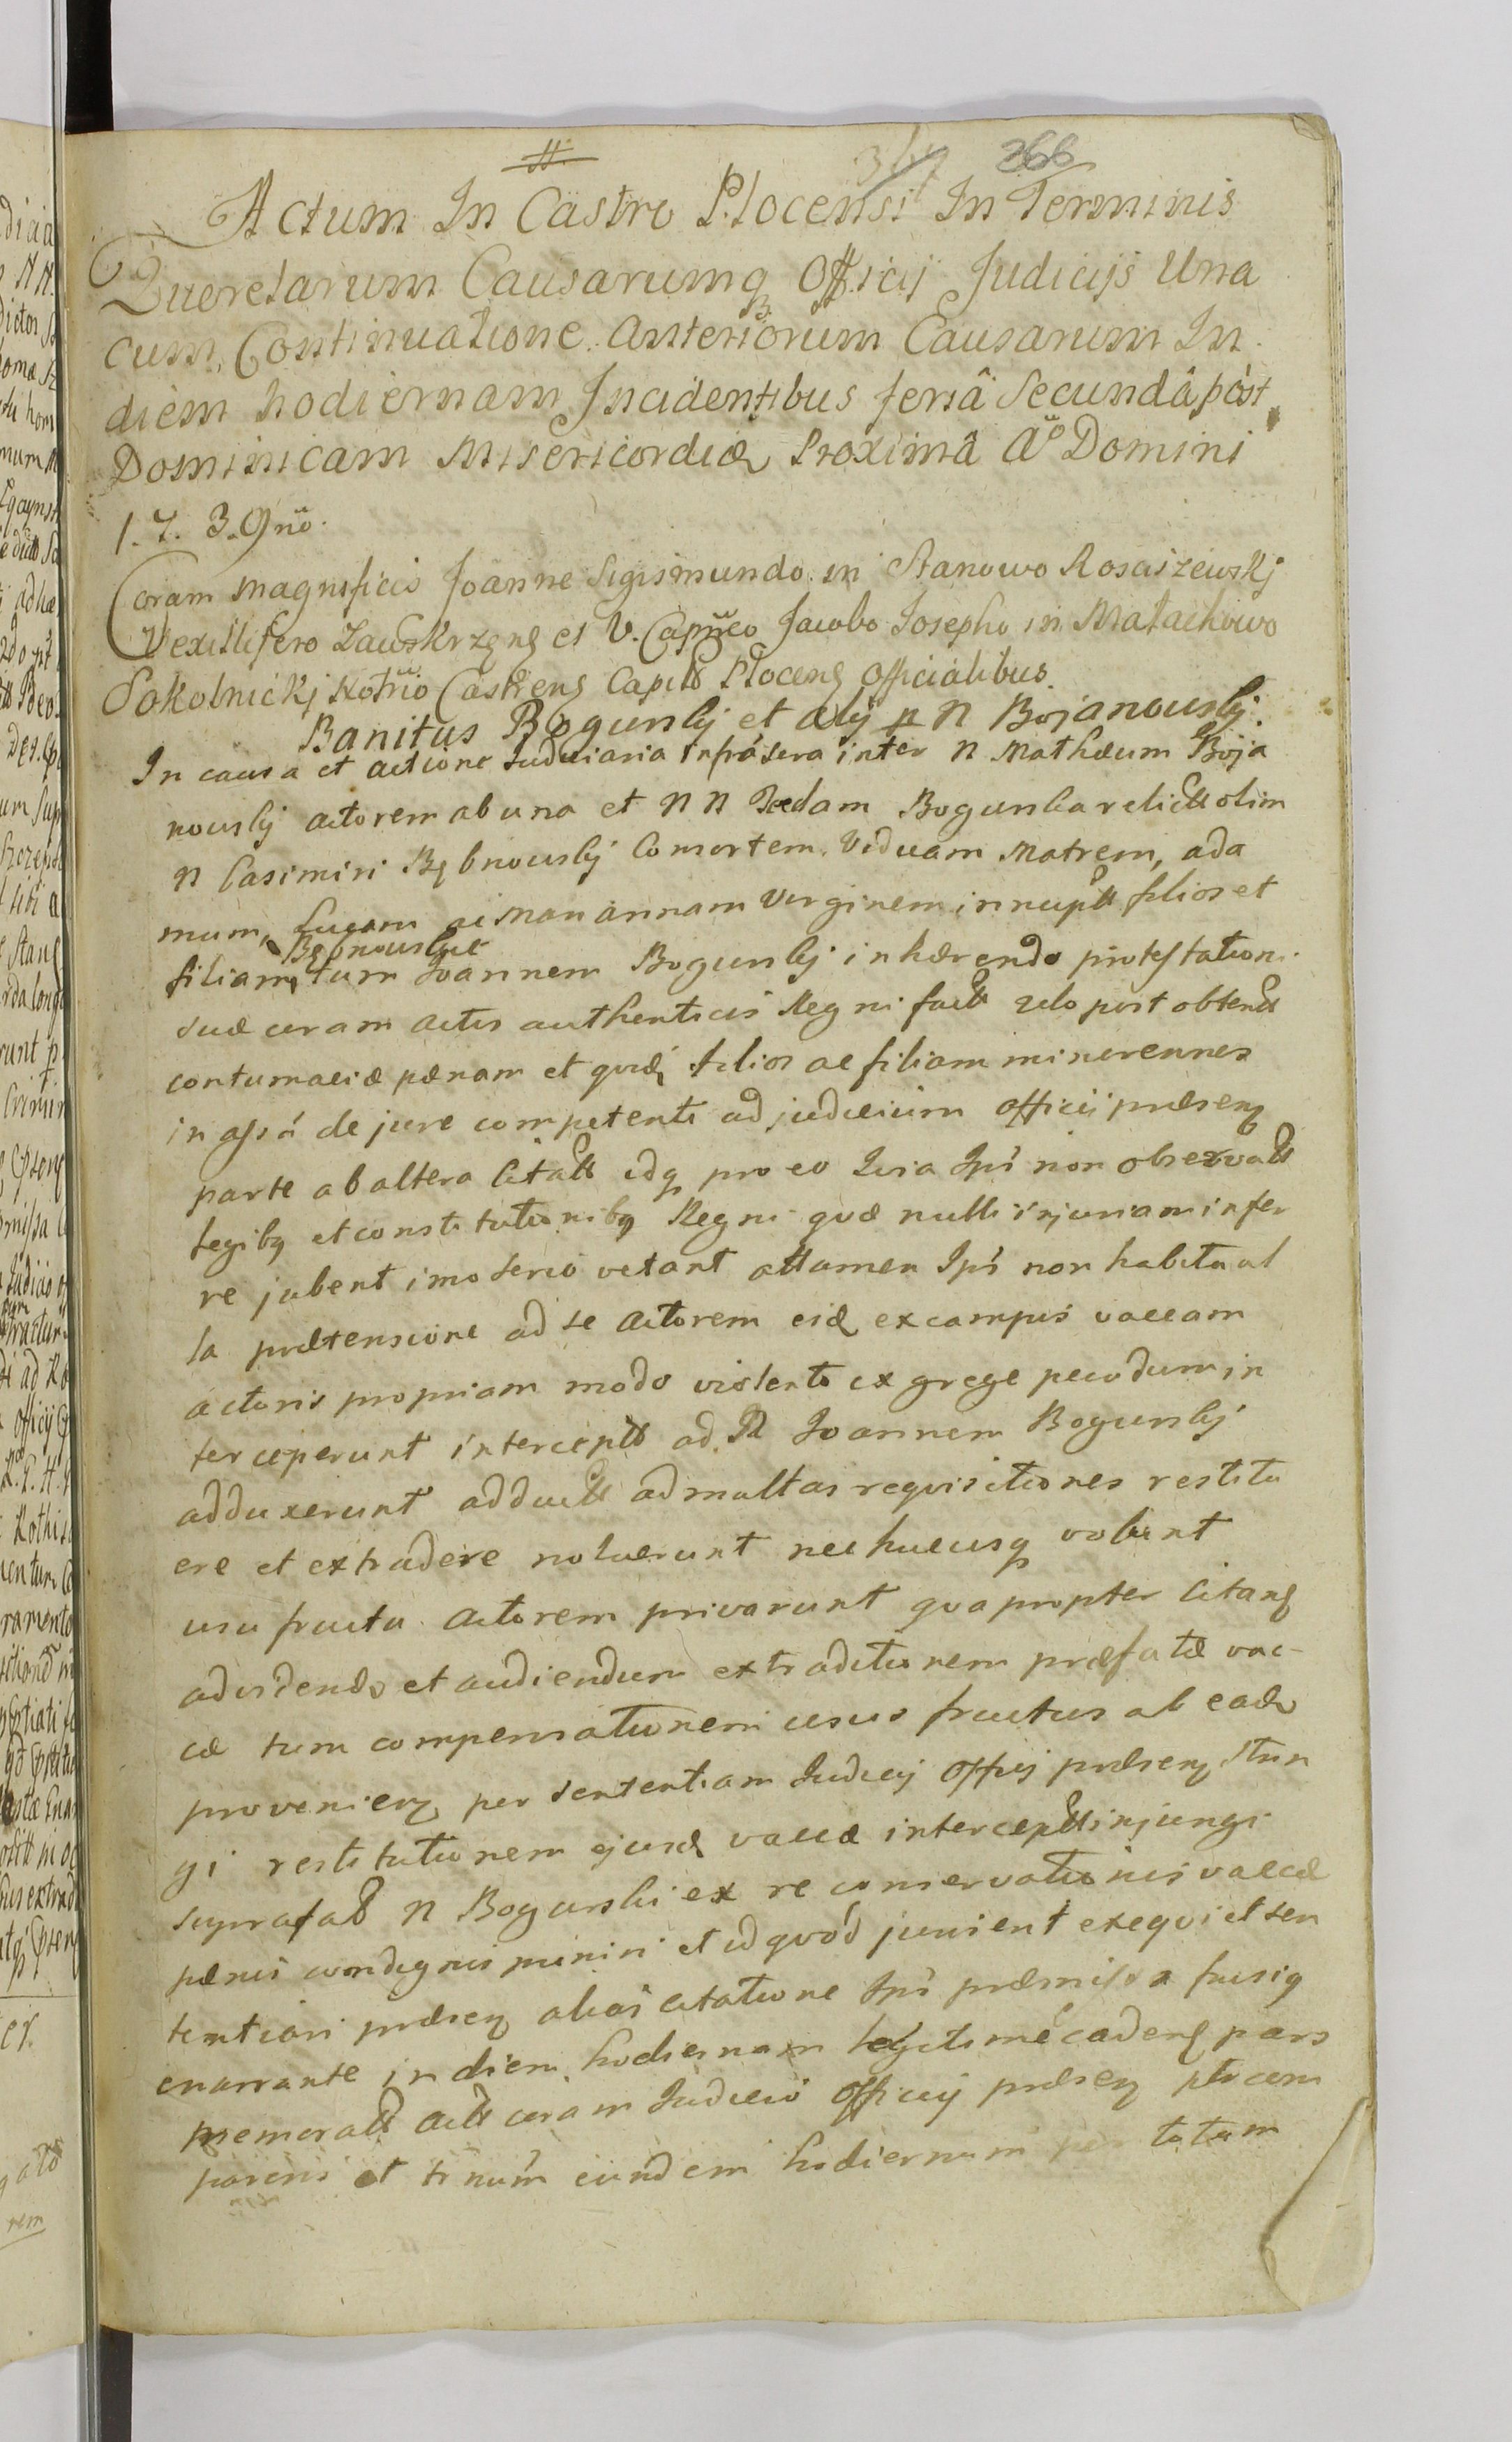 266
Actum In Castro Plocensi In Terminis
Querelarum Causarumq Officij Judicijs Una
cum Continuatione Anteriorum Causarum In
diem hodiernam Incidentibus feriâ Secundâ post
Dominicam Misericordiæ Proximâ Aō Domini
1.7.3.9nō.
Coram Magnificis Joanne Sigismundo in Stanowo Rosciszewskj
Vexillifero Zawskrzyn et V. Capneo Jacobo Josepho in Małachowo
Sokolnickj Notrio Castren Capitt Plocen Officialibus
Banitus Bogurskj et alij p N Bojanouskj
In causa et actione Judiciaria infrásera inter N Mathæum Boja
nouskj actorem ab una et N N Bogurska relictt olim
N Casimiri Bębnouskj Consortem Viduam Matrem, ada
mum, Lucam ac Mariannam Virginem innuptt filios et
Bębnouskie
filiam, tum Joannem Bogurskj inhærendo protestationi
suæ coram actis authenticis Regni factt post obtentt
contumaciæ pænam et filios ac filiam minorennes
in assá de jure competenti ad judicium officij præsen
parte ab altera Citatt idq pro eo Quia Ipsi non observatt
legibq et constitutionibq Regni quæ nulli injuriam infer
re jubent imo serió vetant attamen Ipsi non habita ul
la prætensione ad se Actorem ex campis vaccam
actoris propriam modo violento ex grege pecudum in
terceperunt interceptt ad N Joannem Bogurskj
adduxerunt adductt ad multas requisitiones restitu
ere et extradere noluerunt nec hucusq volunt
usu fructu Actorem privarunt qvapropter Citan
ad videndo et audiendum extraditionem præfatæ vac-
cæ tum compensationem usus fructus ab
provenien per sententiam Judicij Officij præsen
gi restitutionem vaccæ interceptt injungi
suprafatt N Bogurski ex re conservationis vaccæ
pænis condignis puniri et id quód juris erit exequi et sen
tentiari præsen alias citatione Ipsi præmissa fusiq
enarrante in diem hodiernam legitimé caden pars
memoratt Actt coram Judicio Officij præsen
parens et eundem hodiernum per totum